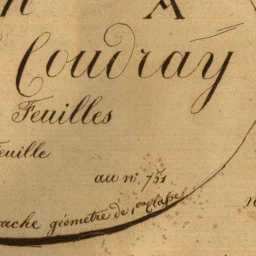 A
Coudraÿ
Feuilles
euille
au n.º 751
ache géomètre de 1.ère classe